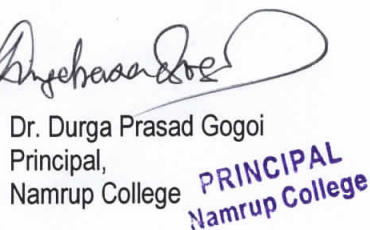 Dr. Durga Prasad Gogoi
Principal,
Namrup College
PRINCIPAL
Namrup College